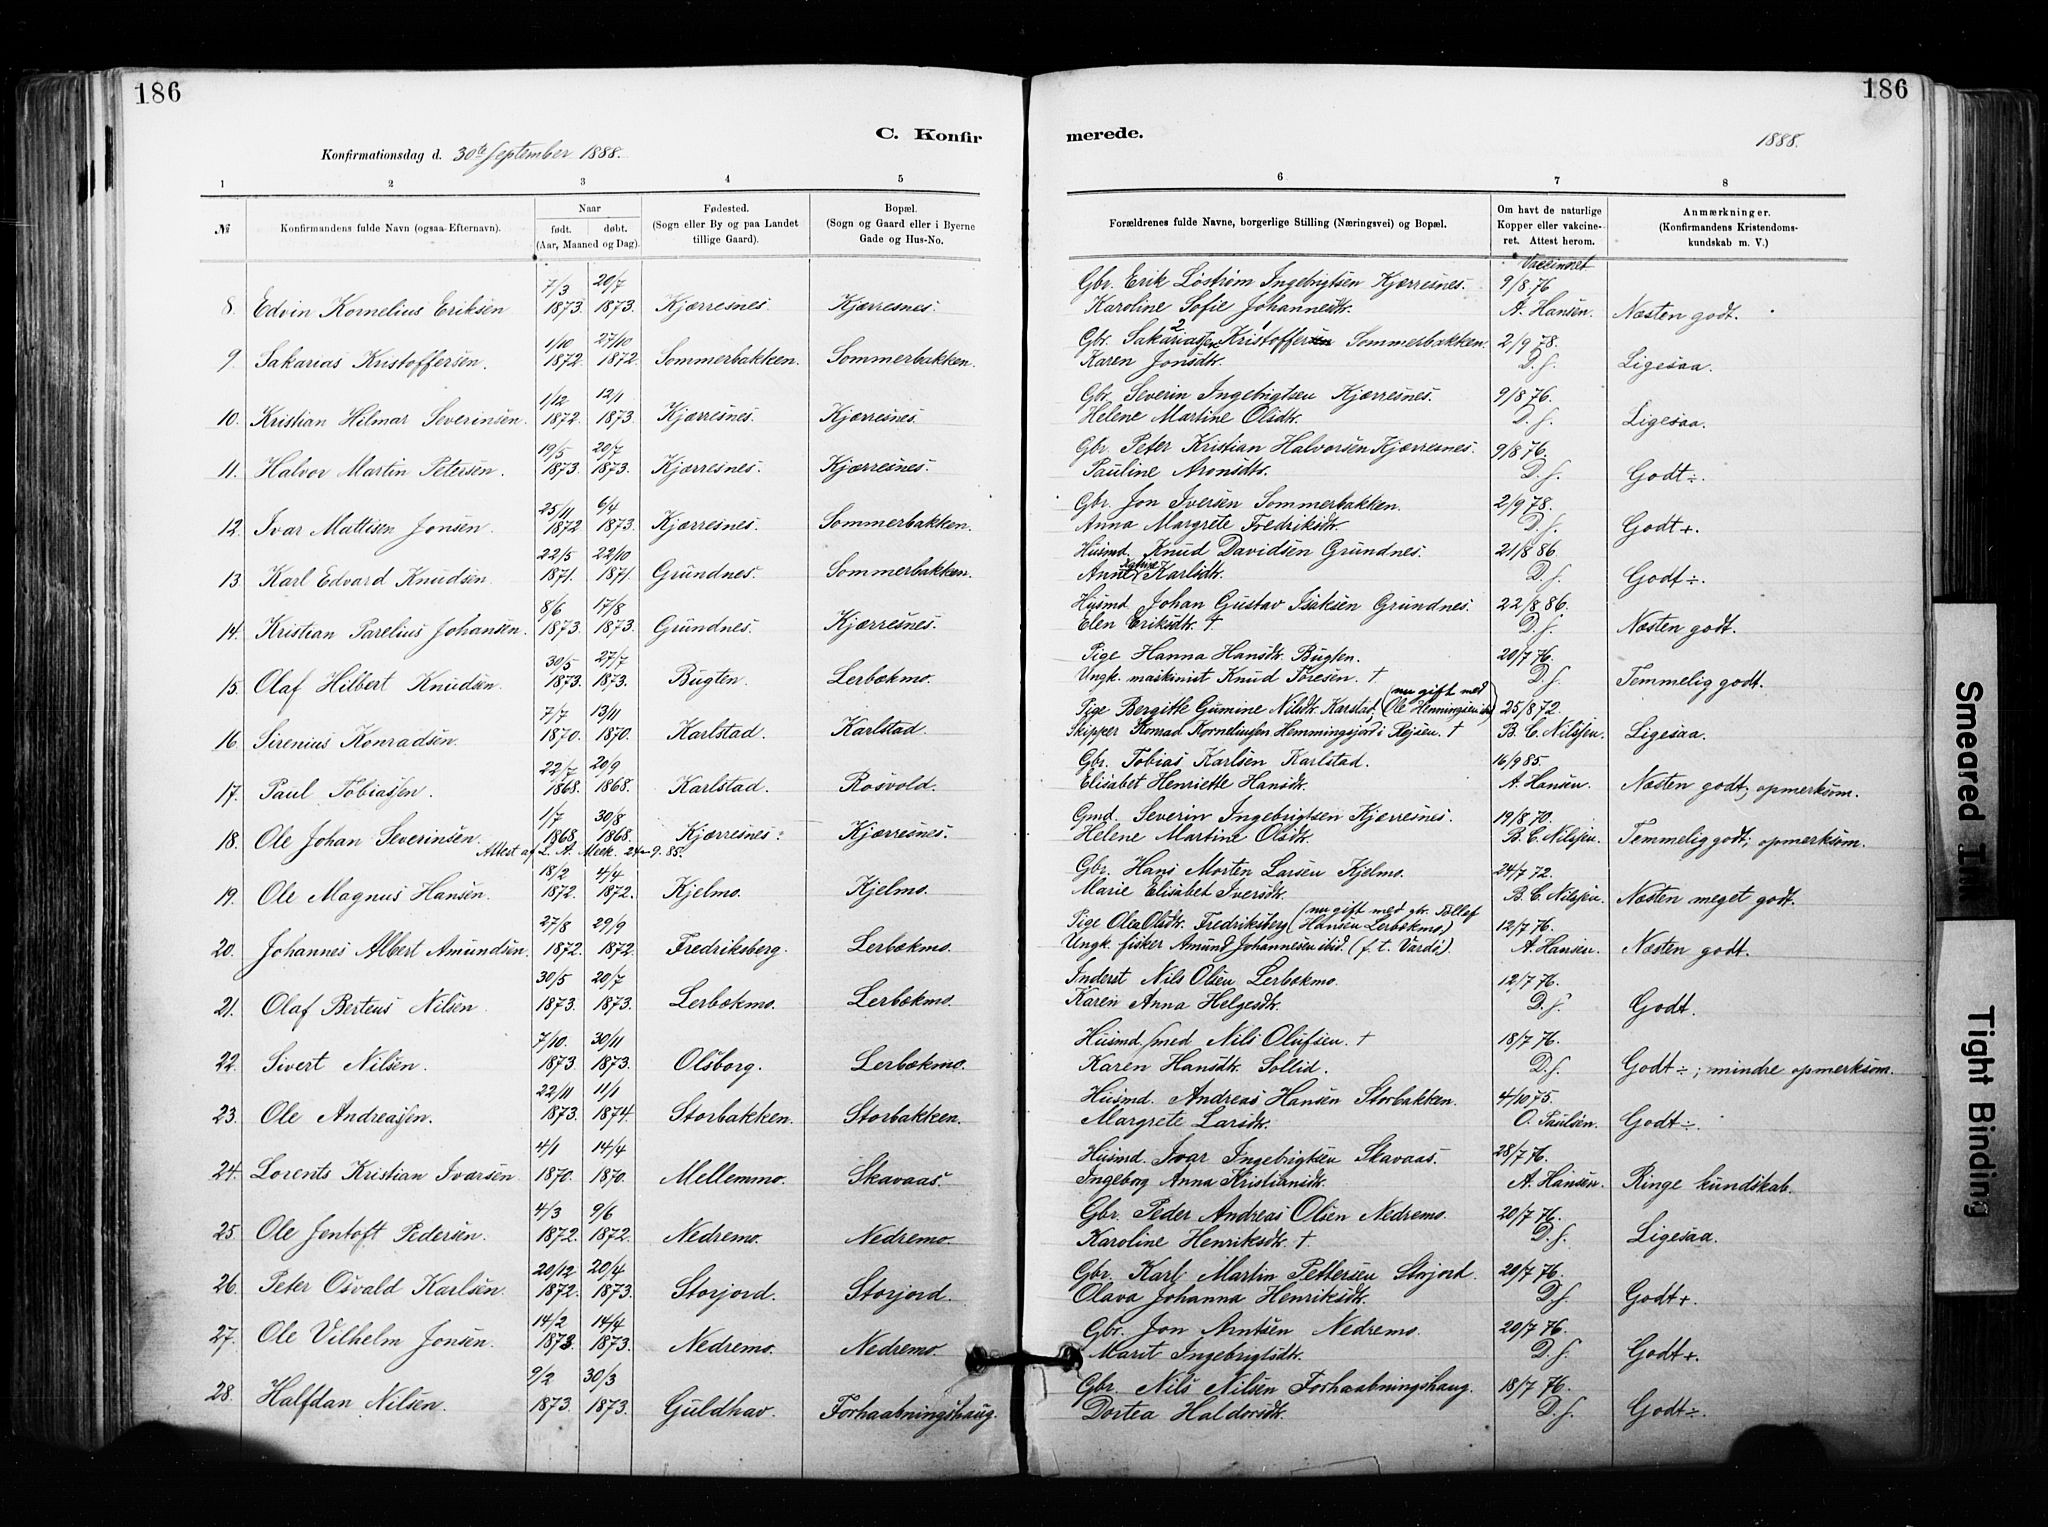 186
186
C. Konfir
merede.
Konfirmationsdag d. 30te September 1888.
1888.
1 2 3 4 5 6 7 8
№ Konfirmandens fulde Navn (ogsaa Efternavn). Naar født. døbt. (Aar, Maaned og Dag). Fødested. (Sogn eller By og paa Landet tillige Gaard). Bopæl. (Sogn og Gaard eller i Byerne Gade og Hus-No. Forældrenes fulde Navne, borgerlige Stilling (Næringsvei) og Bopæl. Om havt de naturlige Kopper eller vakcineret. Attest herom. Anmærkninger. (Konfirmandens Kristendomskundskab m. V.)
Vaccineret
7/3 20/7 Gbr. Erik Løstrøm Ingebrigtsen Kjærresnes. 9/8 76
8. Edvin Kornelius Eriksen 1873. 1873. Kjærresnes. Kjærresnes. Karoline Sofie Johannesdtr. A. Hansen. Næsten godt.
1/10 27/10 Gbr. Sakariassen 2 Kristoffer 1 Sommerbakken. 2/9 78.
9. Sakarias Kristoffersen. 1872. 1872. Sommerbakken. Sommerbakken. Karen Jonsdtr. D. s. Ligesaa.
1/12 12/1 Gbr. Severin Ingebrigtsen Kjærresnes. 9/8 76.
10. Kristian Hilmar Severinsen. 1872. 1873. Kjærresnes. Kjærresnes. Helene Martine Olsdtr. D. s. Ligesaa.
19/5 20/7 Gbr. Peter Kristian Halvorsen Kjærresnes. 9/8 76.
11. Halvor Martin Petersen. 1873. 1873. Kjærresnes. Kjærresnes. Pauline Aronsdtr. D. s. Godt ÷.
25/11 6/4 Gbr. Jon Iversen Sommerbakken. 2/9 78.
12. Ivar Mattisen Jonsen. 1872 1873. Kjærresnes. Sommerbakken. Anna Margrete Fredriksdtr. D. s. Godt +.
22/5 22/10 Husmd. Knud Davidsen Grundnes. 21/8 86.
13. Karl Edvard Knudsen. 1871. 1871. Grundnes. Sommerbakken. Anne Karlsdtr. D. s. Godt ÷.
8/6 17/8 Husmd. Johan Gustav Isaksen Grundnes. 22/8 86.
14. Kristian Parelius Johansen. 1873. 1873. Grundnes. Kjærresnes. Elen Eriksdtr. † D. s. Næsten godt.
30/5 27/7 Pige Hanna Hansdtr. Bugten. 20/7 76.
15. Olaf Hilbert Knudsen. 1873. 1873. Bugten. Lerbækmo. Ungk. maskinist Knud Toresen. † D. s. Temmelig godt.
7/7 13/11 Pige Bergitte Gumine Nilsdtr. Karstad, (nu gift med Ole Henningsen ibd) 25/8 72.
16. Sirenius Konradsen. 1870. 1870. Karlstad. Karlstad. Skipper Konrad Korneliussen Hemmingsjord i Rejsen. † B. C. Nilssen. Ligesaa.
22/7 20/9 Gbr. Tobias Karlsen Karlstad. 16/9 85.
17. Paul Tobiassen. 1868. 1868. Karlstad. Rosvold. Elisabet Henriette Hansdtr. A. Hansen. Næsten godt; opmerksom.
1/7 30/8 Gmd. Severin Ingebrigtsen Kjærresnes. 19/8 70.
18. Ole Johan Severinsen. 1868 1868. Kjærresnes. Kjærresnes. Helene Martine Olsdtr. B. C. Nilssen. Temmelig godt; opmerksom.
Attest af L. A. Meek. 24-9. 85.
18/2 4/4 Gbr. Hans Morten Larsen Kjelmo. 24/7 72.
19. Ole Magnus Hansen. 1872. 1872. Kjelmo. Kjelmo. Marie Elisabet Iversdtr. B. C. Nilssen. Næsten meget godt.
27/8 29/9 Pige Olea Olsdtr. Fredriksberg (nu gift med gbr. Tollef Hansen Lerbækmo) 12/7 76.
20. Johannes Albert Amundsen. 1872. 1872. Fredriksberg. Lerbækmo. Ungk. fisker Amund Johannesen ibid. (f. t. Vardø). A. Hansen. Næsten godt.
30/5 20/7 Inderst Nils Olsen Lerbækmo. 12/7 76.
21. Olaf Berteus Nilsen. 1873. 1873. Lerbækmo. Lerbækmo. Karen Anna Helgesdtr. D. s. Godt.
7/10. 30/11 Husmd. smed Nils Olufsen. † 18/7 76.
22. Sivert Nilsen. 1873. 1873. Olsborg. Lerbækmo. Karen Hansdtr. Sollid. D. s. Godt ÷; mindre opmerksom.
22/11 11/1 Husmd. Andreas Hansen Storbakken. 4/10 75.
23. Ole Andreassen. 1873. 1874. Storbakken. Storbakken. Margrete Larsdtr. O. Paulsen. Godt ÷.
4/1 14/4 Husmd. Ivar Ingebrigtsen Skavaas. 28/7 76.
24. Lorents Kristian Ivarsen 1870. 1870. Mellemmo. Skavaas. Ingeborg Anna Kristiansdtr. A. Hansen. Ringe kundskab.
4/3 9/6 Gbr. Peder Andreas Olsen Nedremo. 20/7 76.
25. Ole Jentoft Pedersen. 1872. 1872. Nedremo. Nedremo. Karoline Henriksdtr. †. D. s. Ligesaa.
20/12 20/4 Gbr. Karl Martin Pettersen Storjord. 20/7 76.
26. Peter Osvald Karlsen. 1872. 1873. Storjord. Storjord. Olava Johanna Henriksdtr. D. s. Godt +.
14/2 14/4 Gbr. Jon Arntsen Nedremo. 20/7 76.
27. Ole Vilhelm Jonsen. 1873. 1873. Nedremo. Nedremo. Marit Ingebrigtsdtr. D. s. Godt +.
9/2 30/3 Gbr. Nils Nilsen Forhaabningshaug. 18/7 76.
28. Halfdan Nilsen. 1873. 1873. Guldhav. Forhaabningshaug. Dortea Haldorsdtr. D. s. Godt ÷.
Smeared Ink
Tight Binding